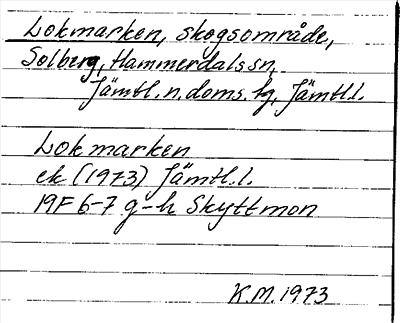 Lokmarken, skogsområde,
Solberg, Hammerdals sn,
Jämtl. n. doms. hg, Jämtl.l.
Lokmarken
ek (1973) Jämtl.l.
19F 6-7 g-h Skyttmon
K.M. 1973